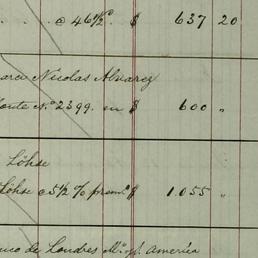 @ 46½ $ 637 20
Nicolas Alvarez
Nº 2399. en $ 600 "
Löhse
Löhse @ 5½ % prem.º $ 1.055 "
de Londres M.º y S. America